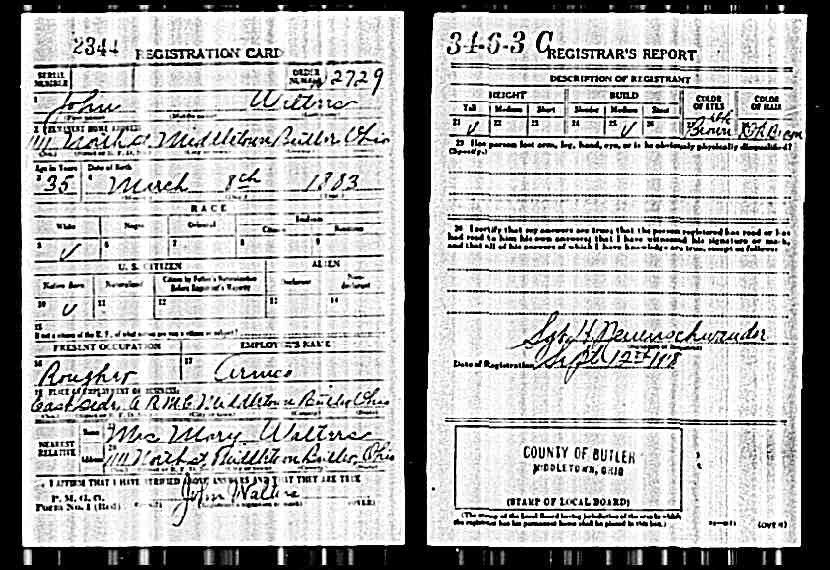 2344 REGISTRATION CARD
SERIAL NUMBER
ORDER NUMBER 2729
1 John Walters
2 PERMANENT HOME ADDRESS
1111 North st Middletown Butler Ohio
Age in Years
Date of Birth
3 35
4 March 8th 1883
RACE
White
Negro
Oriental
Indian
Citizen
5 6 7 8 9
U. S. CITIZEN
ALIEN
Native Born
Naturalized
Citizen by Father's Naturalization Before Registrant's Majority
Declarant
Non-declarant
10 11 12 13 14
15
If not a citizen of the U. S., of what nation are you a citizen or subject?
PRESENT OCCUPATION
EMPLOYER'S NAME
16 Rougher
17 Armco
18 PLACE OF EMPLOYMENT OR BUSINESS
East side A R M Co Middletown Butler Ohio
NEAREST RELATIVE
Name Mrs Mary Walters
Address 1111 North st Middletown Butler Ohio
I AFFIRM THAT I HAVE VERIFIED ABOVE ANSWERS AND THAT THEY ARE TRUE
P. M. G. O.
Form No. 1 (Red)
John Walters
(OVER)
34-6-3 C
REGISTRAR'S REPORT
DESCRIPTION OF REGISTRANT
HEIGHT
BUILD
COLOR OF EYES
COLOR OF HAIR
Tall
Medium
Short
Slender
Medium
Stout
21 22 23 24 25 26
Brown
Brown
29 Has person lost arm, leg, hand, eye, or is he obviously physically disqualified?
(Specify.)
30 I certify that my answers are true; that the person registered has read or has
had read to him his own answers; that I have witnessed his signature or mark,
and that all of his answers of which I have knowledge are true, except as follows:
Date of Registration Sept 12th 1918
COUNTY OF BUTLER
MIDDLETOWN, OHIO
(STAMP OF LOCAL BOARD)
(The stamp of the Local Board having jurisdiction of the area in which
the registrant has his permanent home shall be placed in this box.)
(OVER)